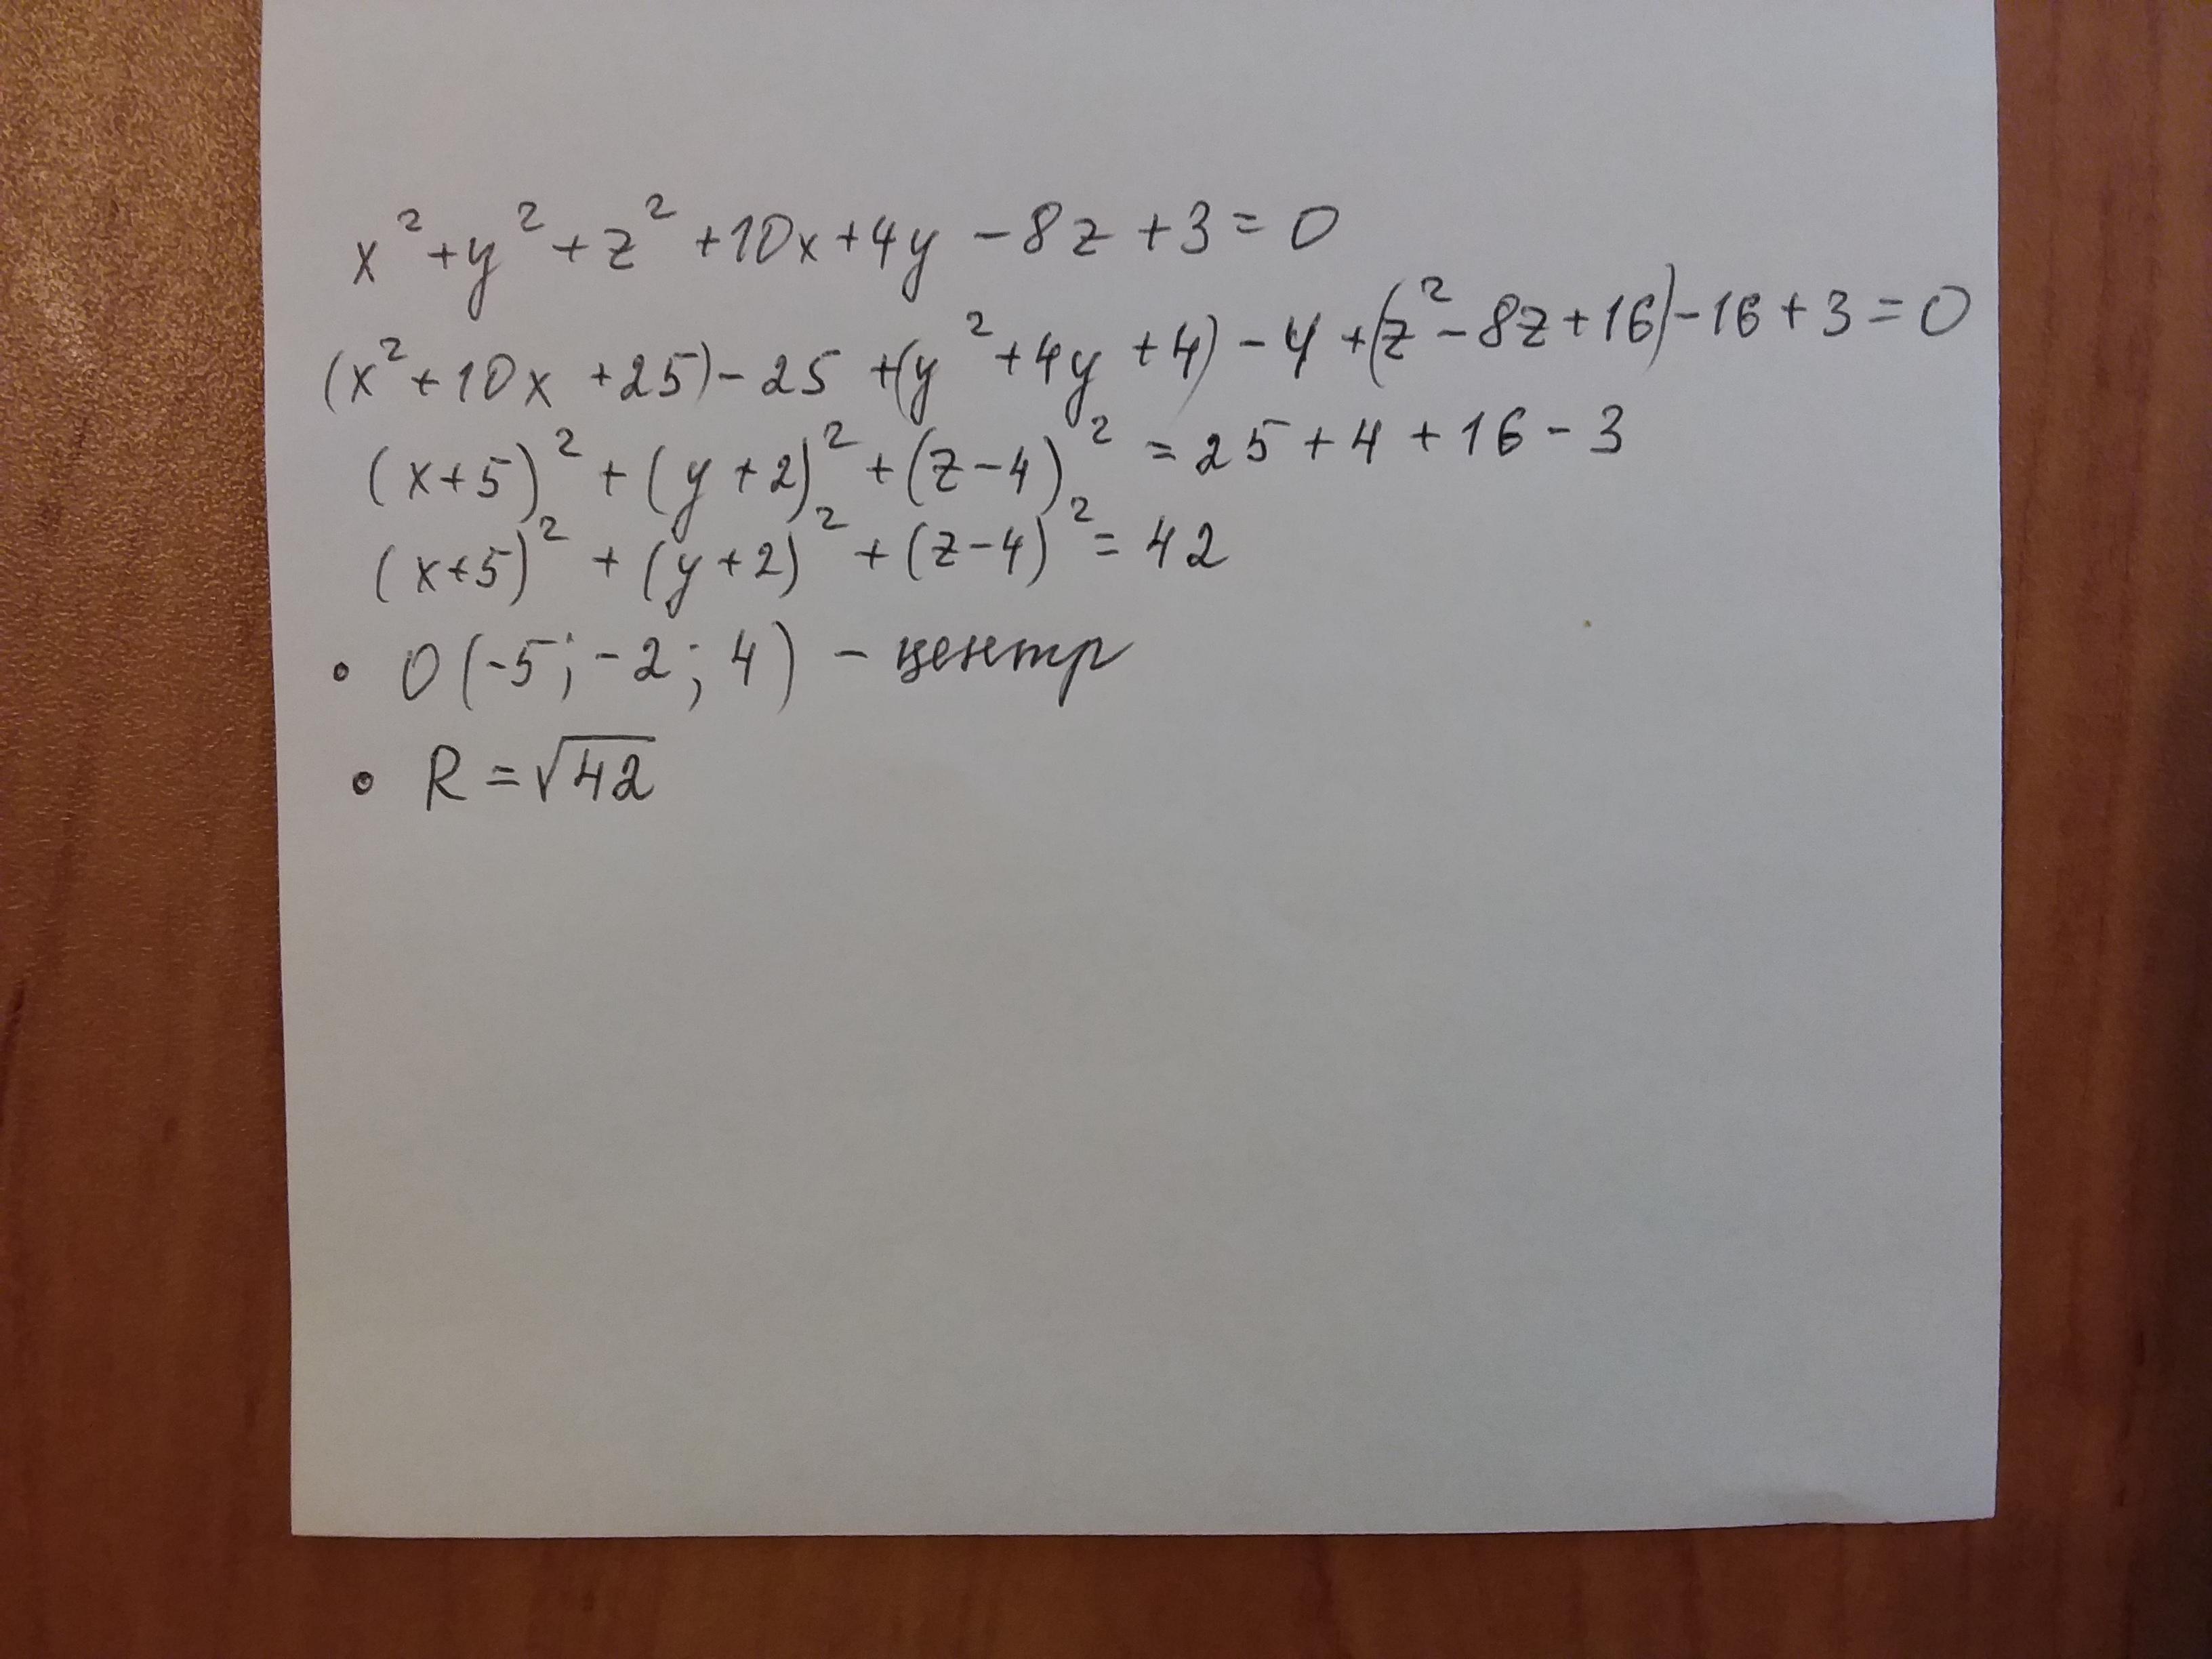 x² + y² + z² + 10x + 4y - 8z + 3 = 0
(x² + 10x + 25) - 25 + (y² + 4y + 4) - 4 + (z² - 8z + 16) - 16 + 3 = 0
(x+5)² + (y+2)² + (z-4)² = 25 + 4 + 16 - 3
(x+5)² + (y+2)² + (z-4)² = 42
• O(-5; -2; 4) - центр
• R = √42